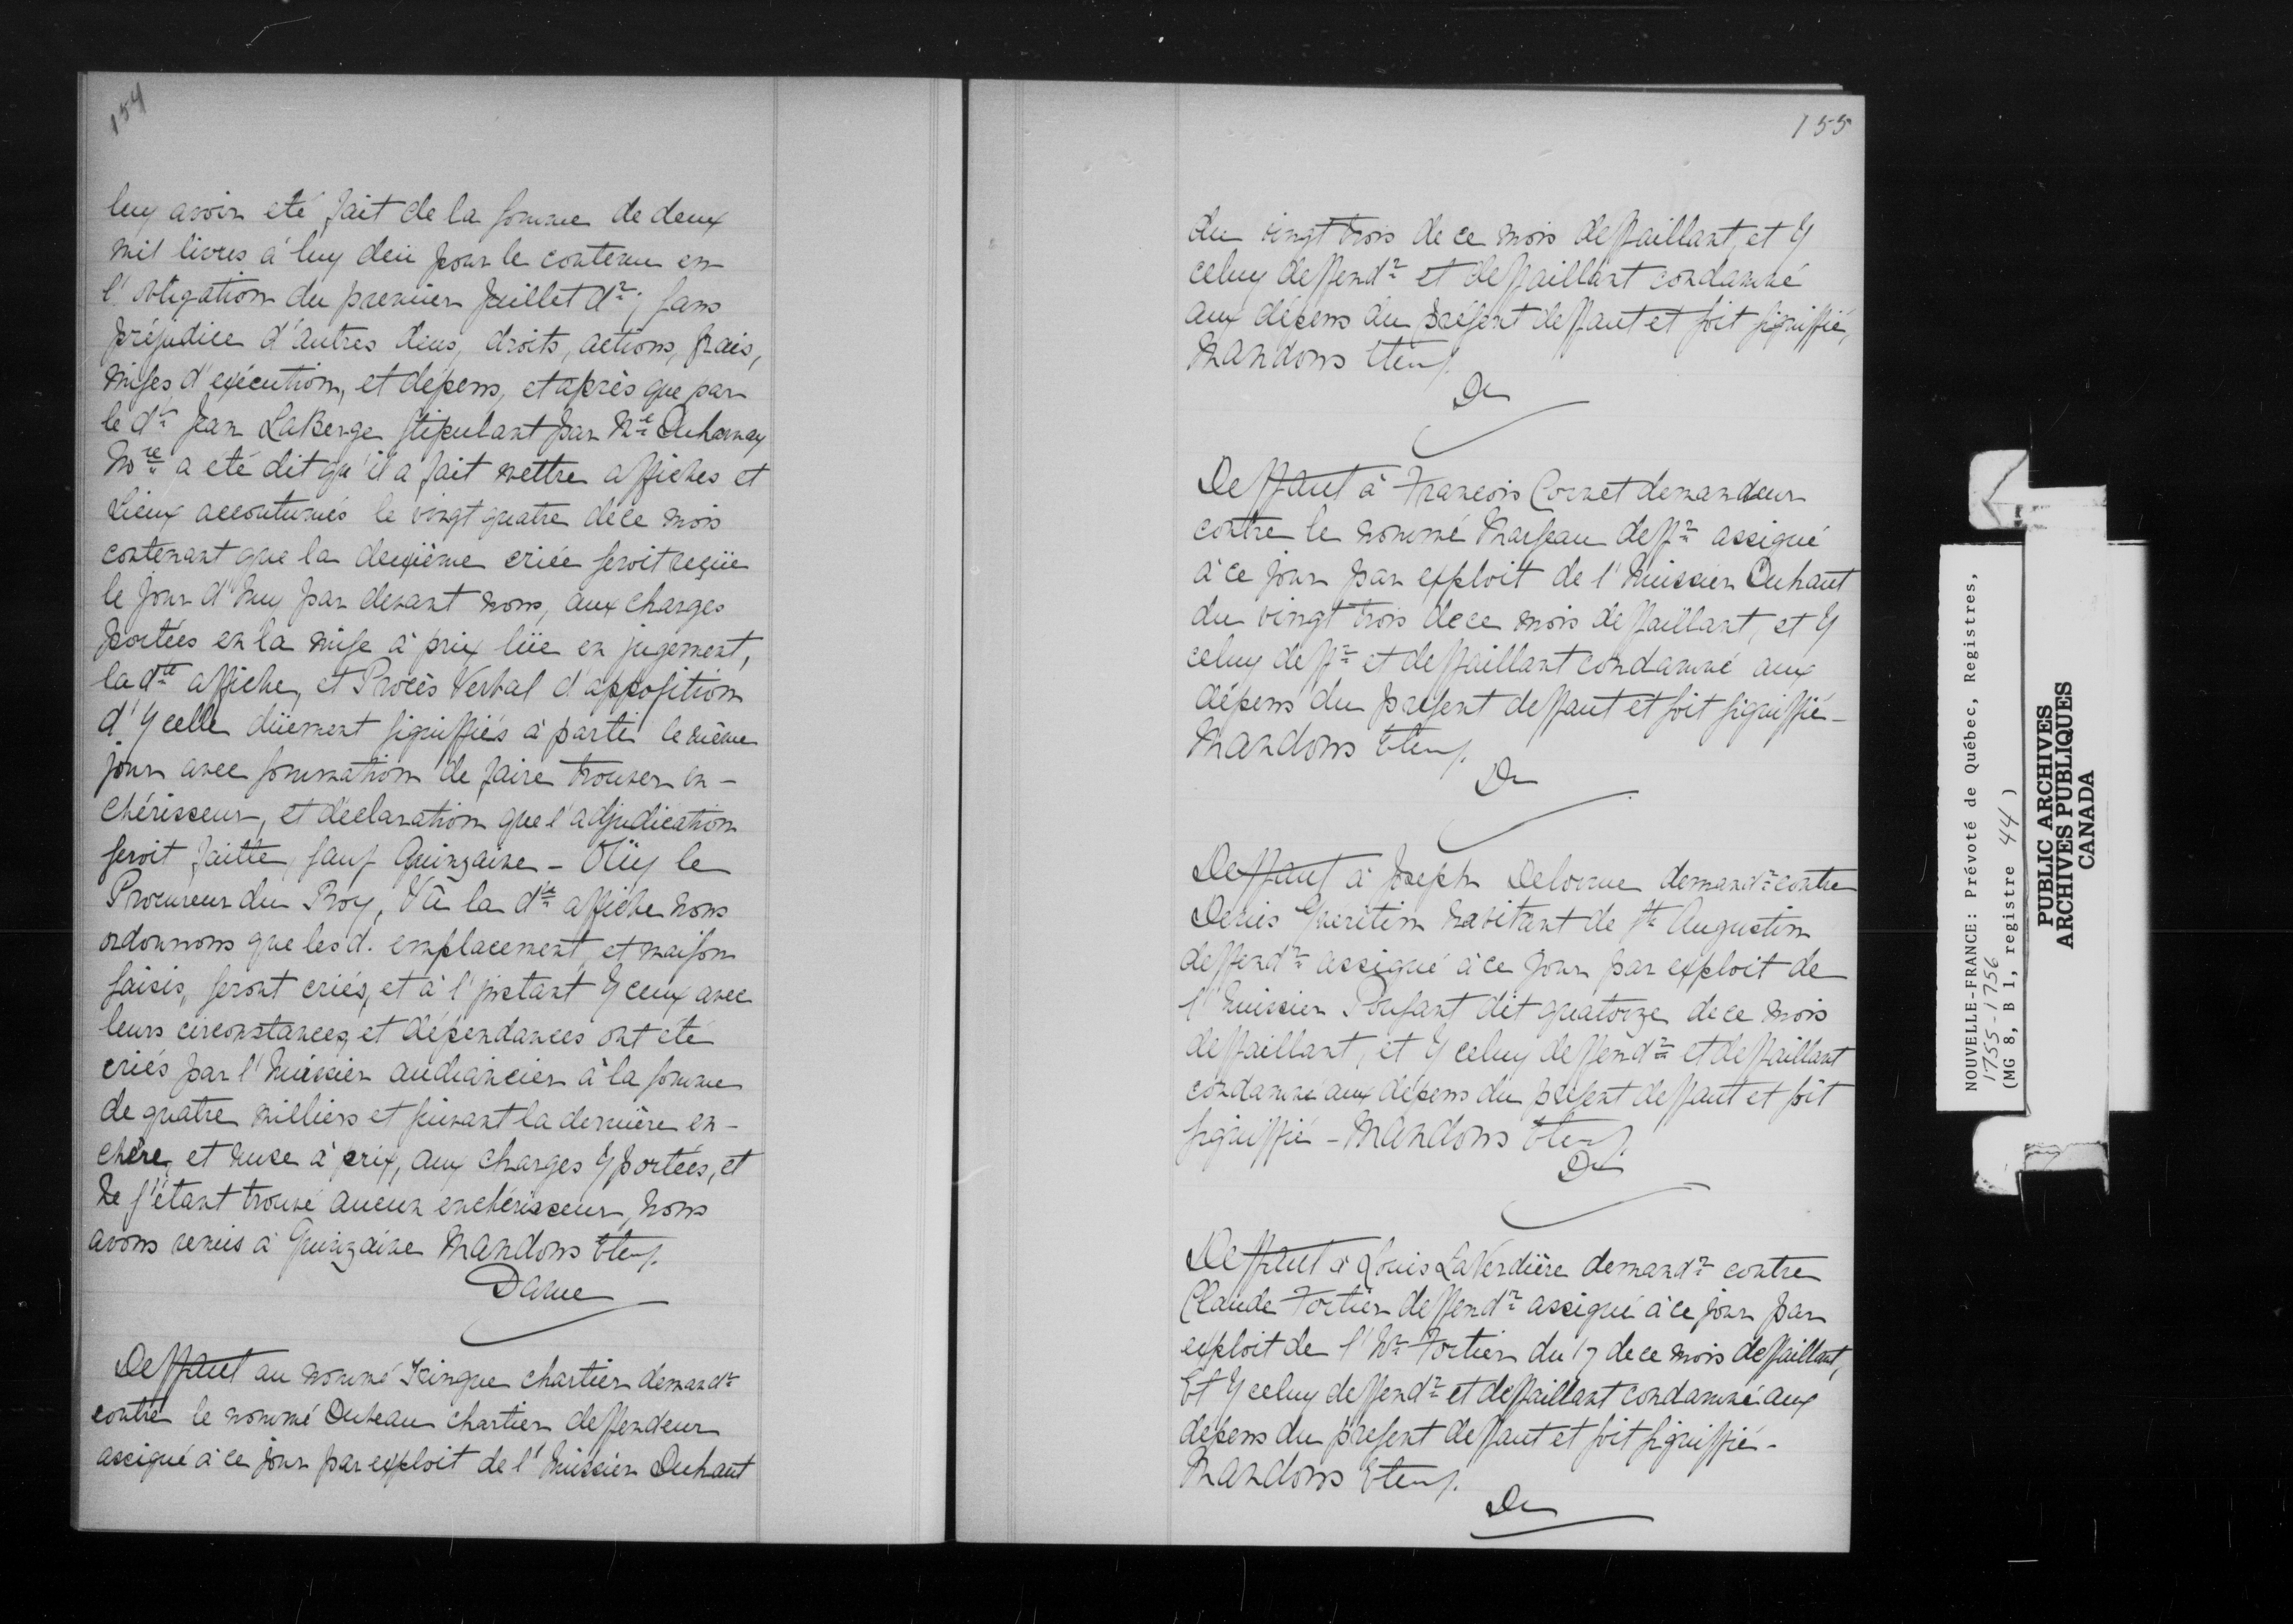 154
luy avoir eté fait de la somme de deux
mil livres à luy deüe pour le contenu en
l'obligation du premier Juillet d.r; sans
préjudice d'autres deus, droits, actions, frais,
mises d'exécution, et dépens, et après que par
le d.t Jean LaBerge stipulant par M.e Duharnay
No.re a été dit qu'il a fait mettre affiches et
Lieux accoutumés le vingt quatre de ce mois
contenant que la deuxième criée seroit reçüe
le jour d'huy par devant nous, aux charges
portées en la mise à prix lüe en jugement,
la d.te affiche, et Procès Verbal d'apposition
d'Ycelle düement signiffiés à partie le même
jour avec sommation de faire trouver en-
chérisseur, et déclaration que l'adjudication
seroit faitte, sauf Quinzaine - Oüy le
Procureur du Roy, Vû la d.te affiche nous
ordonnons que les d. emplacement, et maison
saisis, seront criés, et à l'jnstant Yceux avec
leurs circonstances, et dépendances ont été
criés par l'huissier audiancier à la somme
de quatre milliers et suivant la dernière en-
chère, et muse à prix, aux charges Y portées, et
Ne s'étant trouvé aucun enchérisseur, nous
avons remis à Quinzaine Mandons Etc.
Daine
Deffaut au nommé Kingue chartier demand.r
contre le nommé Duteau chartier deffendeur
assigné à ce jour par exploit de l'huissier Duhaut
155
du vingt trois de ce mois deffaillant, et Y
celuy deffend.r et deffaillant condamné
aux dépens du présent deffaut et soit signiffié,
Mandons Etc.
Da
Deffaut à François Cornet demandeur
contre le nommé Marseau deff.r assigné
à ce jour par exploit de l'huissier Duhaut
du vingt trois de ce mois deffaillant, et Y
celuy deff.r et deffaillant condamné aux
dépens du présent deffaut et soit signiffié -
Mandons Etc.
Da
Deffaut à Joseph Delorme demand.r contre
Denis Guérétin habitant de S.t Augustin
deffend.r assigné à ce jour par exploit de
l'huissier Ponsant dit quatorze de ce mois
deffaillant, et Y celuy deffend.r et deffaillant
condamné aux dépens du présent deffaut et soit
signiffié - Mandons Etc.
Da
Deffaut à Louis LaVerdière demand.r contre
Claude Fortier deffend.r assigné à ce jour par
exploit de l'h.r Fortier du 17 de ce mois deffaillant,
Et Y celuy deffend.r et deffaillant condamné aux
dépens du présent deffaut et soit signiffié -
Mandons Etc.
Da
NOUVELLE-FRANCE: Prévoté de Québec, Registres,
1755-1756
(MG 8, B 1, registre 44)
PUBLIC ARCHIVES
ARCHIVES PUBLIQUES
CANADA